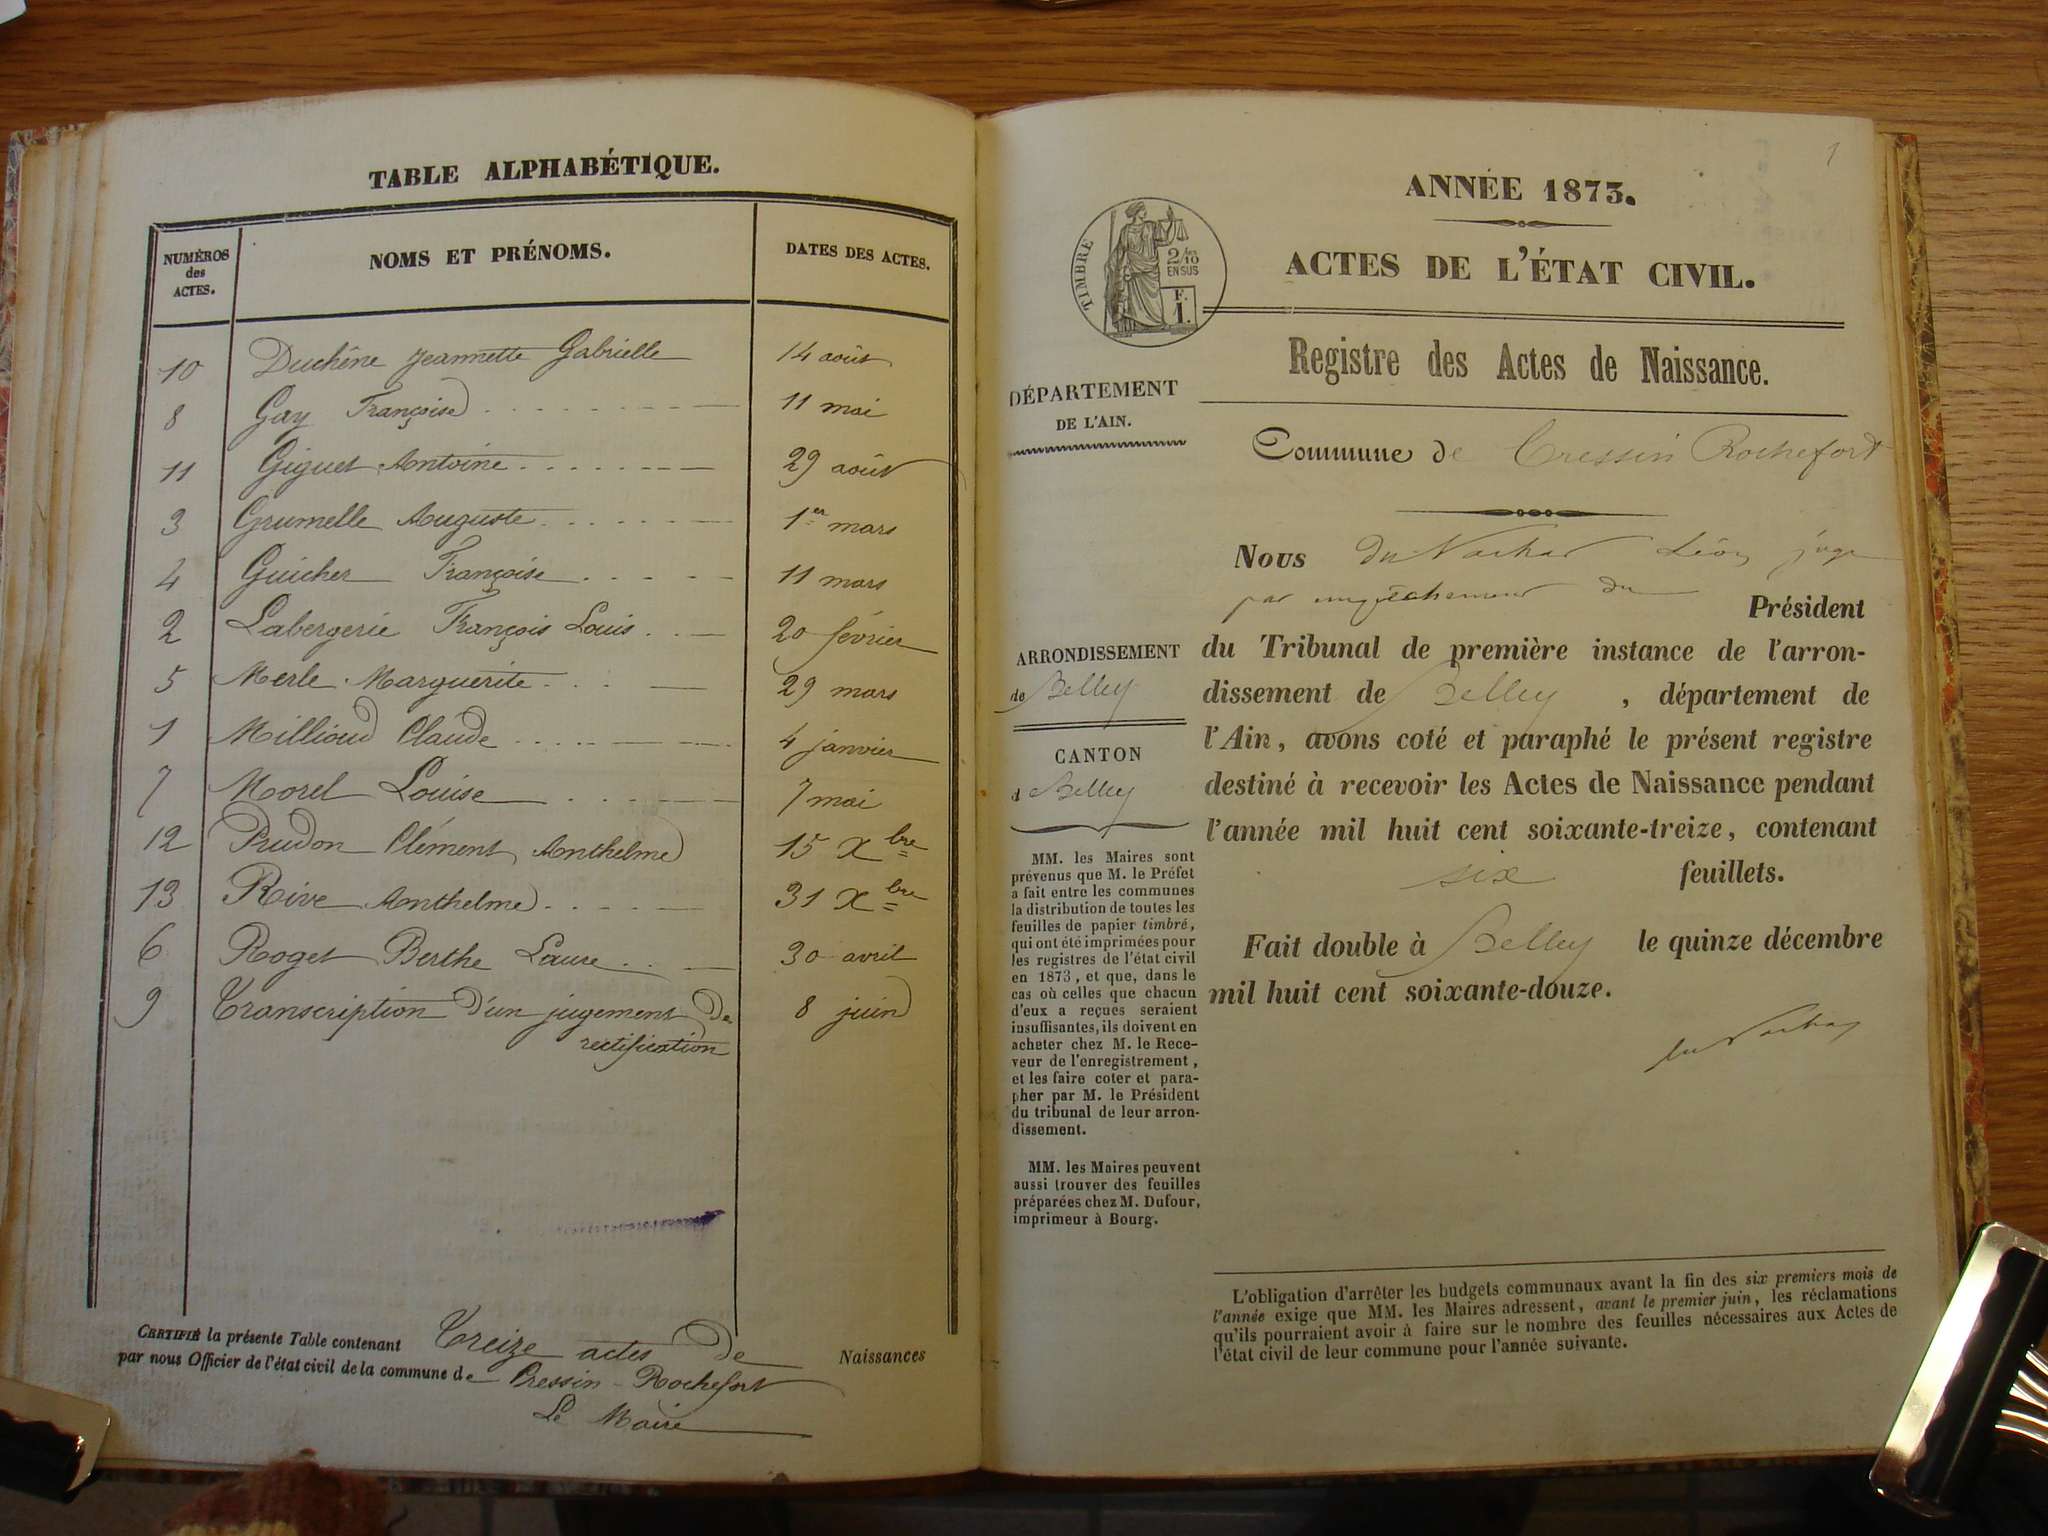 TABLE ALPHABÉTIQUE.
NUMÉROS des ACTES. NOMS ET PRÉNOMS. DATES DES ACTES.
10 Duchêne Jeannette Gabrielle 14 août
8 Gay Françoise 11 mai
11 Giguet Antoine 29 août
3 Grumelle Auguste 1er mars
4 Guicher Françoise 11 mars
2 Labergerie François Louis 20 février
5 Merle Marguerite 29 mars
1 Millioud Claude 4 janvier
7 Morel Louise 7 mai
12 Prudon Clément Anthelme 15 Xbre
13 Rive Anthelme 31 Xbre
6 Roget Berthe Laure 30 avril
9 Transcription d'un jugement de 8 juin
rectification
CERTIFIÉ la présente Table contenant Treize actes de Naissances
par nous Officier de l'état civil de la commune de Cressin-Rochefort
Le Maire
1
ANNÉE 1873.
ACTES DE L'ÉTAT CIVIL.
TIMBRE
2/10
EN SUS
F.
1.
Registre des Actes de Naissance.
DÉPARTEMENT
DE L'AIN.
Commune de Cressin Rochefort
Nous Du Nachar Léon juge
par empêchement du Président
du Tribunal de première instance de l'arron-
dissement de Belley , département de
l'Ain, avons coté et paraphé le présent registre
destiné à recevoir les Actes de Naissance pendant
l'année mil huit cent soixante-treize, contenant
six feuillets.
Fait double à Belley le quinze décembre
mil huit cent soixante-douze.
ARRONDISSEMENT
de Belley
CANTON
d Belley
MM. les Maires sont
prévenus que M. le Préfet
a fait entre les communes
la distribution de toutes les
feuilles de papier timbré,
qui ont été imprimées pour
les registres de l'état civil
en 1873, et que, dans le
cas où celles que chacun
d'eux a reçues seraient
insuffisantes, ils doivent en
acheter chez M. le Rece-
veur de l'enregistrement,
et les faire coter et para-
pher par M. le Président
du tribunal de leur arron-
dissement.
MM. les Maires peuvent
aussi trouver des feuilles
préparées chez M. Dufour,
imprimeur à Bourg.
L'obligation d'arrêter les budgets communaux avant la fin des six premiers mois de
l'année exige que MM. les Maires adressent, avant le premier juin, les réclamations
qu'ils pourraient avoir à faire sur le nombre des feuilles nécessaires aux Actes de
l'état civil de leur commune pour l'année suivante.